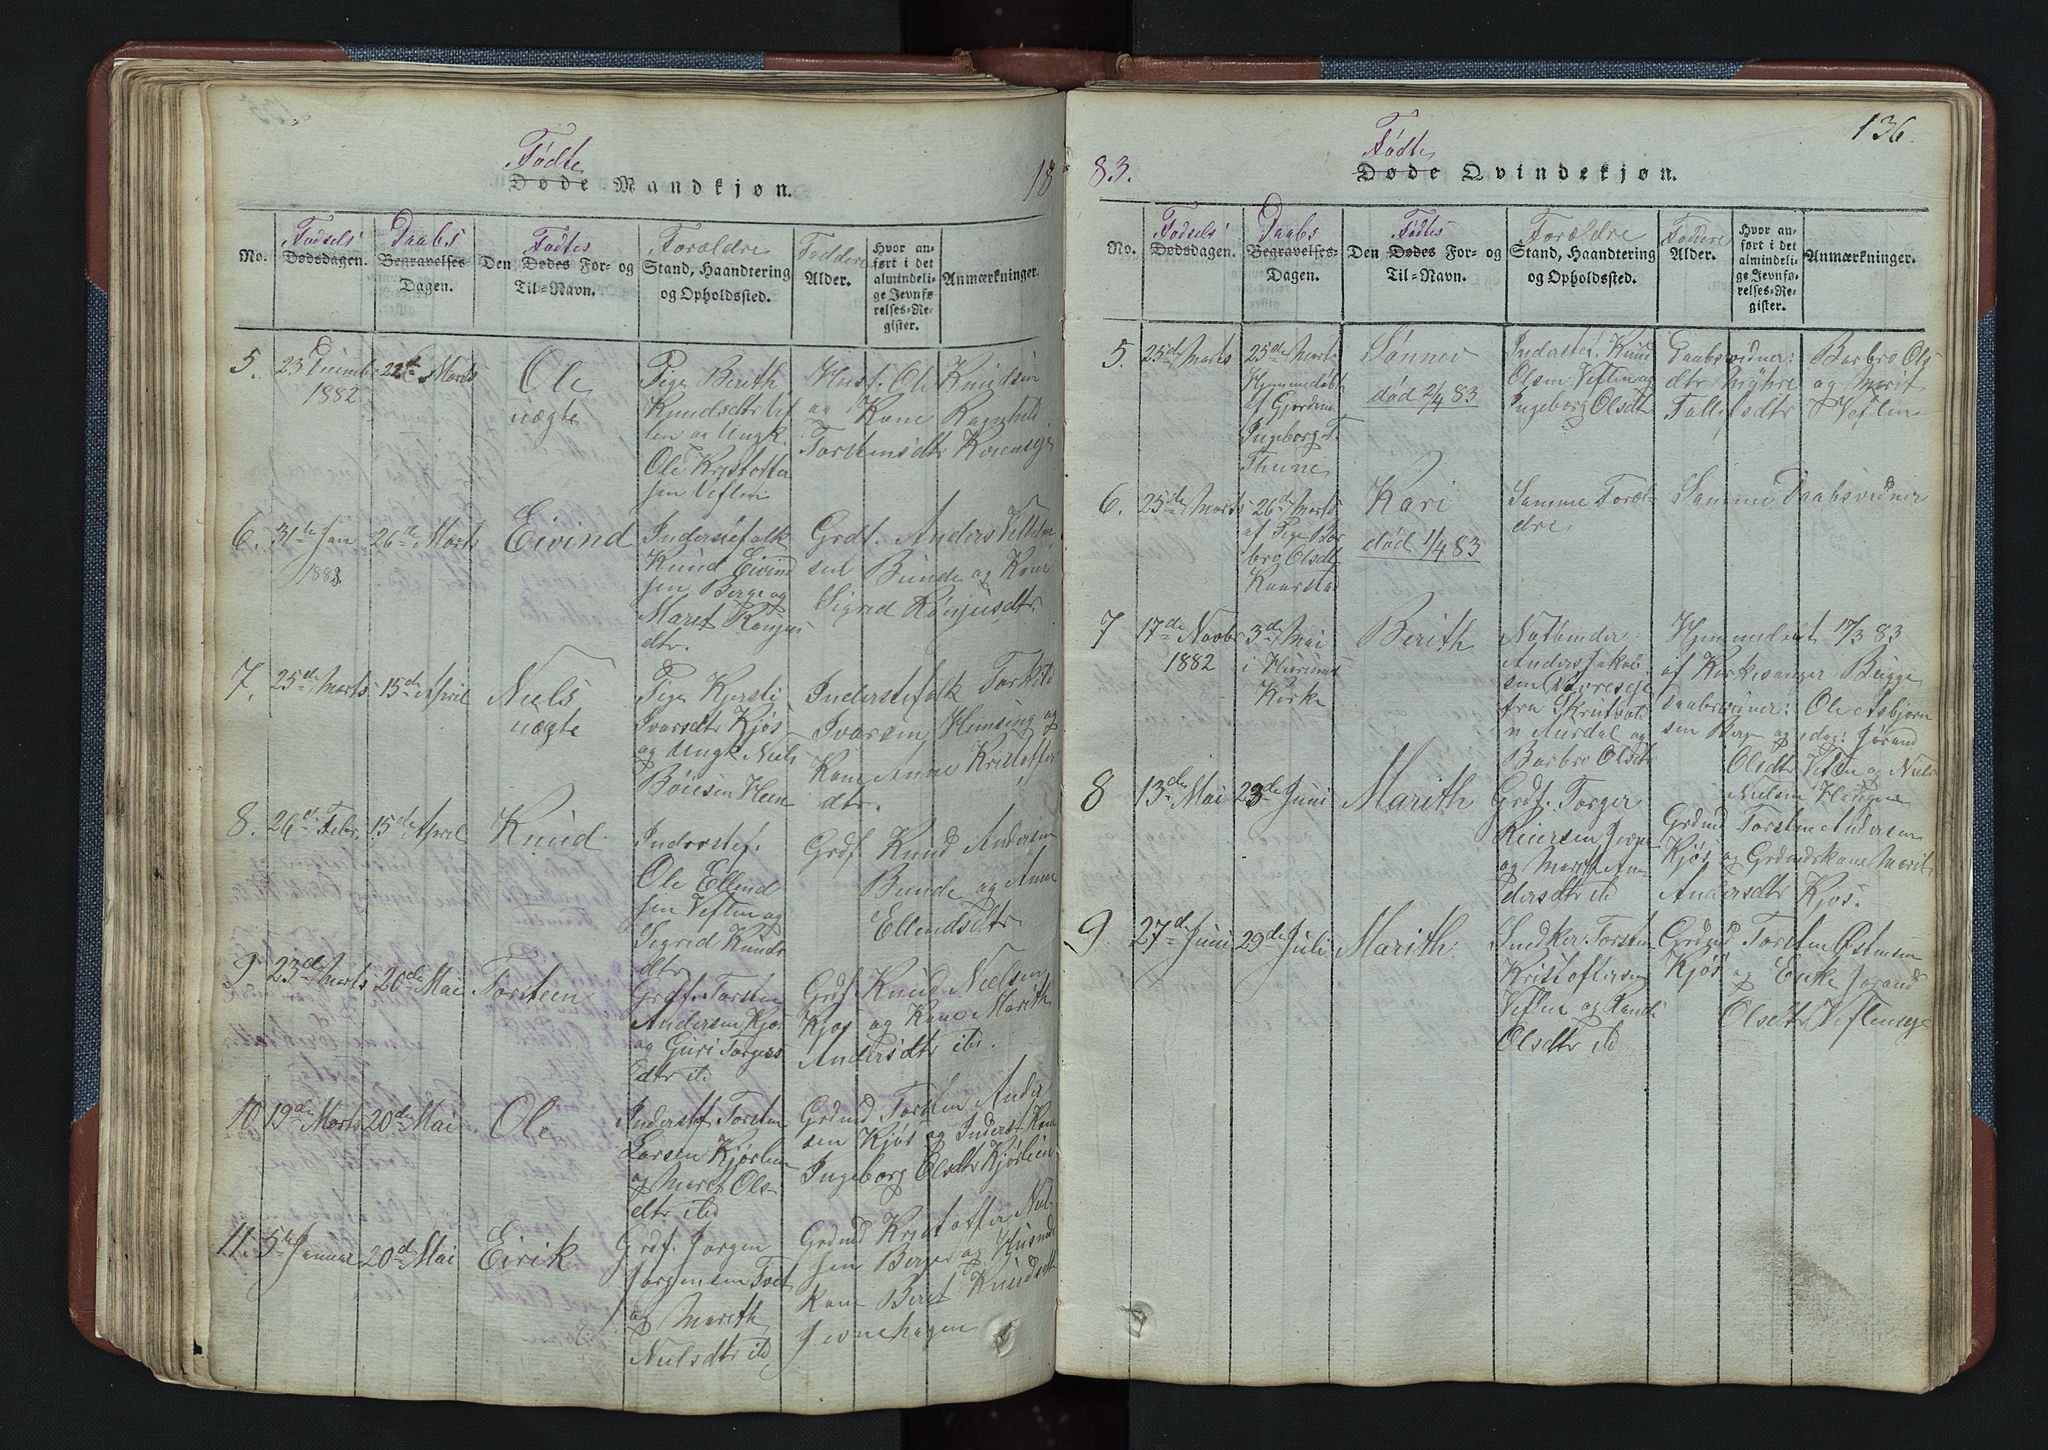 Fødte
Døde Mandkjøn.
18
No.
Fødsels
Dødsdagen.
Daabs
Begravelses-
Dagen.
Fødtes
Den Dødes For- og
Til-Navn.
Forældre
Stand, Haandtering
og Opholdssted.
Faddere
Alder.
Hvor an-
ført i det
almindeli-
ge Jevnfø-
relses-Re-
gister.
Anmærkninger.
5. 23 Decembe
1882
22de Marts
Ole
uægte
Pige Berith
Knudsdtr Vef
len og Ungk.
Ole Kristoffer
sen Veflen
Husf. Ole Knudsen
og Kone Ragnhild
Torstensdtr
6. 31te Jan
1883
26de Marts
Eivind
Inderstefolk
Knud Eivind
sen Berge og
Marit
dtr.
Grdf. Anders
sen Bunde og Kone
Sigrid
7. 25de Marts
15de April
Niels
uægte
Pige Kjersti
Ivarsdtr Kjøs
og Ungk. Niels
Inderstefolk Torkild
Ivarsen Hemsing og
Kone Anne Kristoffer
dtr.
8. 26de Febr.
15de April
Knud
Inderstef.
Ole Ellend
sen Veflen og
Sigrid Knuds
dtr
Grdf Knud Andersen
Bunde og Anne
Ellendsdtr
9 23de Marts
20de Mai
Torsteen
Grdf. Torsten
Andersen Kjøs
og Guri Torgers
dtr ibd
Grdf Knud Nielsen
Kjøs og Kone Marith
Andersdtr ibd.
10. 19de Marts
20de Mai
Ole
Inderstf Torsten
Larsen Kjørlien
og Marit Ols
dtr ibd
Grdmd Torsten Ander
sen Kjøs og Inderst Kone
Ingeborg Olsdtr Kjørlien
11. 5te Januar
20de Mai
Eirik
Grdf. Jørgen
Jørgensen Tvet
og Marith
Nielsdtr ibd
Grdmd Kristoffer Niel-
sen Berge og Husmd
kone Beret Knudsdtr
Jevnehagen
136.
Fødte
83. Døde Qvindekjøn.
No.
Fødsels
Dødsdagen.
Daabs
Begravelses-
Dagen.
Fødtes
Den Dødes For- og
Til-Navn.
Forældre
Stand, Haandtering
og Opholdssted.
Faddere
Alder.
Hvor an-
ført i det
almindeli-
ge Jevnfø-
relses-Re-
gister.
Anmærkninger.
5. 25de Marts
25de Marts
Hjemmedøbt
af Gjordem.
Ingeborg T.
Thune
Sønnev
død 2/4 83
Inderstef. Knud
Olsen Veflen og
Ingeborg Olsdtr
Daabsvidner: Barbro Ols
dtr Myhre og Marit
Tollefsdtr Veflen
6. 25de Marts
26de Marts
af Pige Bar
bro Olsdtr
Kaarstad
Kari
død 1/4 83
Samme Foræl-
dre
Samme Daabsvidner
7 17de Novbr
1882
3de Mai
i Hurums
Kirke
Berith
Notbinder
Anders Jakob
sen
fra Skrutvol
n Aurdal og
Barbro Olsdtr
Hjemmedøbt 17/3 83
af Kirkesanger Bugge
Daabsvidner: Ole Asbjørn
sen Berg og Jørand
Olsdtr Veflen og Niels
Nielsen Haugen
8 13de Mai
23de Juni
Marith
Grdf. Torger
Reiersen Jevne
og Marit An
dersdtr ibd
Grdmd Torsten Andersen
Kjøs og Grdmdskone Marit
Andersdtr Kjøs.
9. 27de Juni
29de Juli
Marith
Snedker Torsten
Kristoffersen
Veflen og Randi
Olsdtr ibd
Grdmd Torsten Østensen
Kjøs og Enke Jørand
Olsdtr Vefleneje